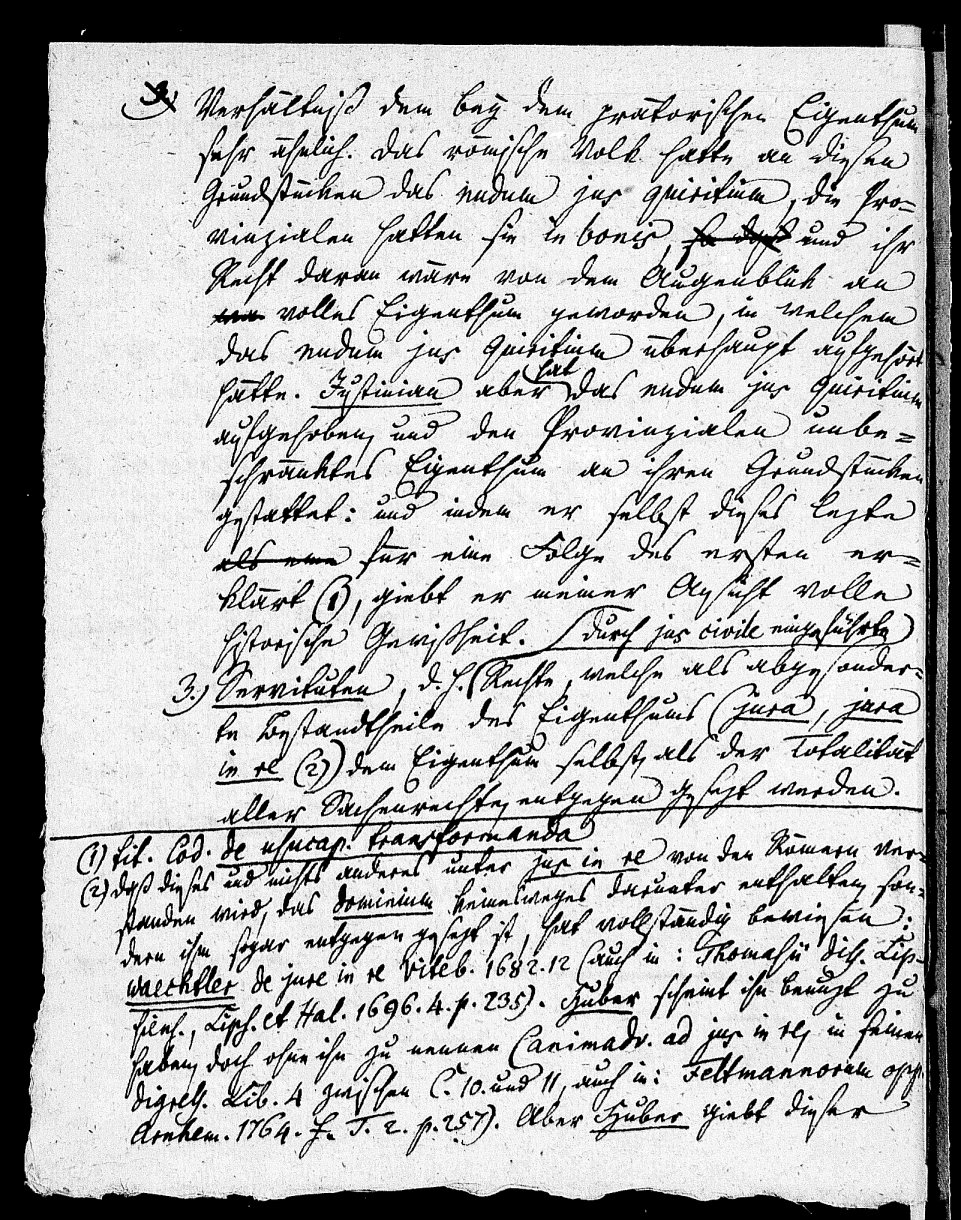 Verhältniß dem bey dem prätorischen Eigenthum
sehr ähnlich. Das römische Volk hatte an diesen
Grundstücken das nudum jus quiritium, die Pro-
vinzialen hatten sie in bonis, so daß und ihr
Recht daran wäre von dem Augenblick an
volles Eigenthum geworden, in welchem
das nudum jus quiritium überhaupt aufgehört
hätte. Justinian aber hat das nudum jus quiritium
aufgehoben, und den Provinzialen unbe-
schränktes Eigenthum an ihren Grundstücken
gestattet: und indem er selbst dieses lezte
als eine für eine Folge des ersten er-
klärt (1), giebt er meiner Ansicht volle
historische Gewißheit.
3.) Servituten, d. h. (durch jus civile eingeführte) Rechte, welche als abgesonder-
te Bestandtheile des Eigenthums (jura, jura
in re (2)) dem Eigenthum selbst, als der Totalität
aller Sachenrechte, entgegen gesezt werden.
(1) tit. Cod. de usucap. transformanda
(2) daß dieses und nichts anderes unter jus in re von den Römern ver-
standen wird, das dominium keinesweges darunter enthalten, son-
dern ihm sogar entgegen gesezt ist, hat vollständig bewiesen:
Waechtler de jure in re Viteb. 1682. 12 (auch in: Thomasii diss. Lip-
siens., Lips. et Hal. 1696. 4. p. 235). Huber scheint ihn benuzt zu
haben, doch ohne ihn zu nennen (animadv. ad jus in re, in seinen
digress. Lib. 4 zwischen C. 10. und 11, auch in: Feltmannorum opp.
Arnhem. 1764. f. T. 2. p. 257). Aber Huber giebt dieser